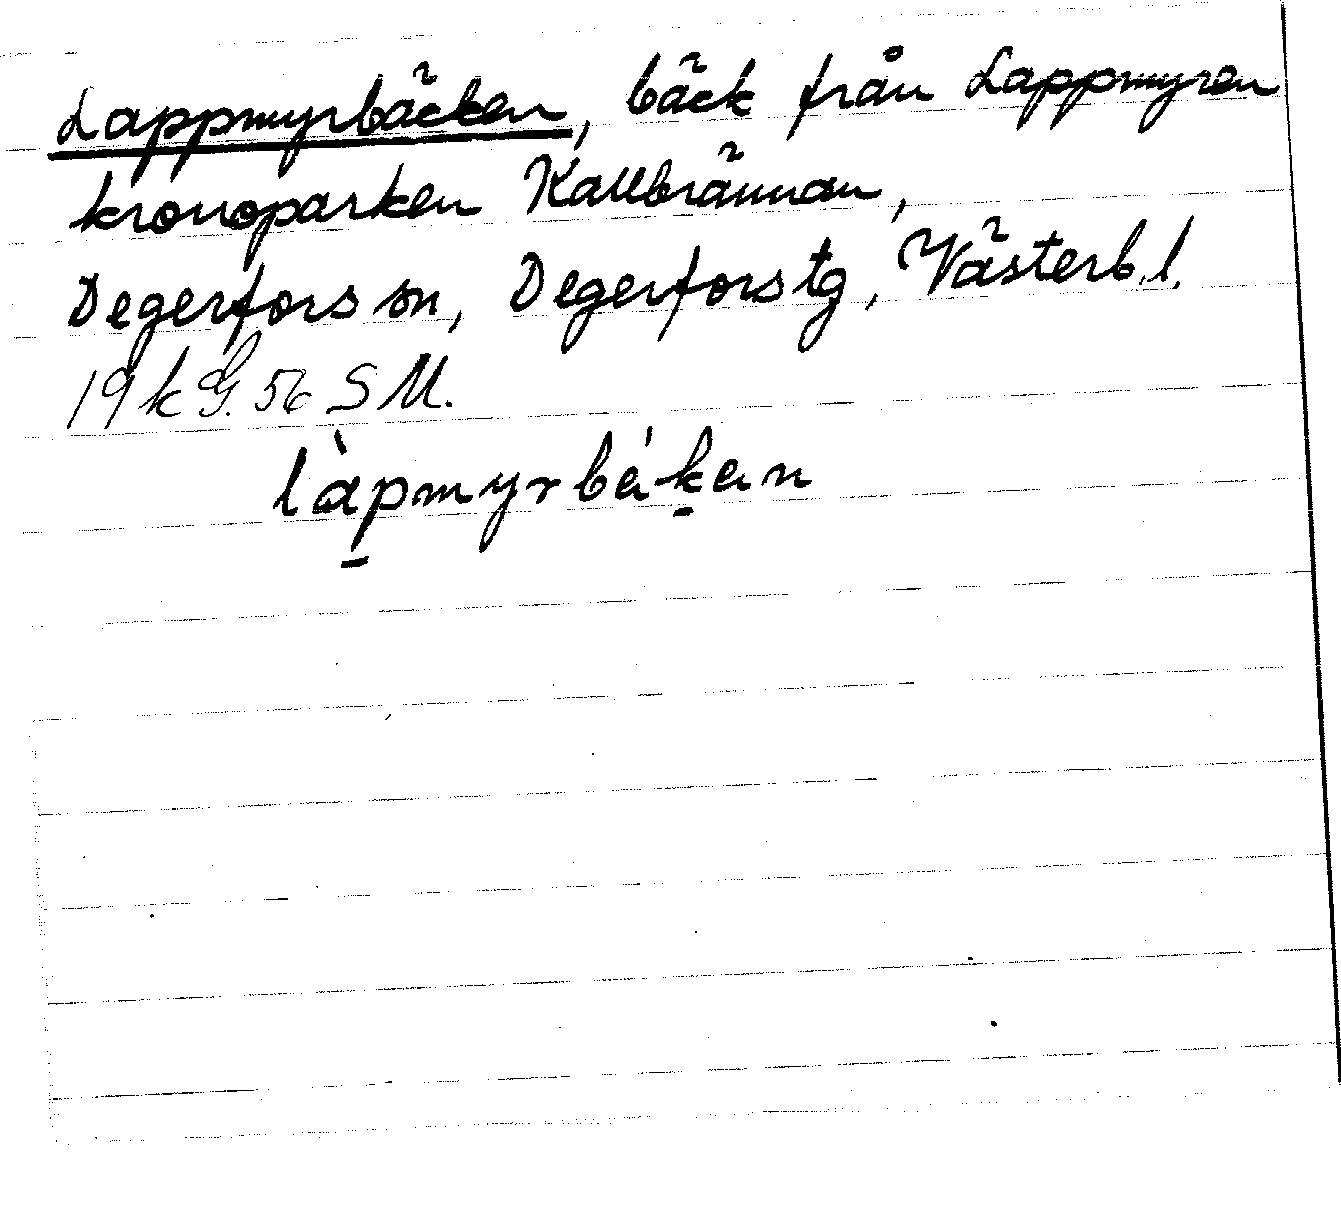 Lappmyrbäcken, bäck från Lappmyren
kronoparken Kallbrännan,
Degerfors sn, Degerfors tg, Västerb. l.
19 k G. 56 S M.
làpmyrbákan